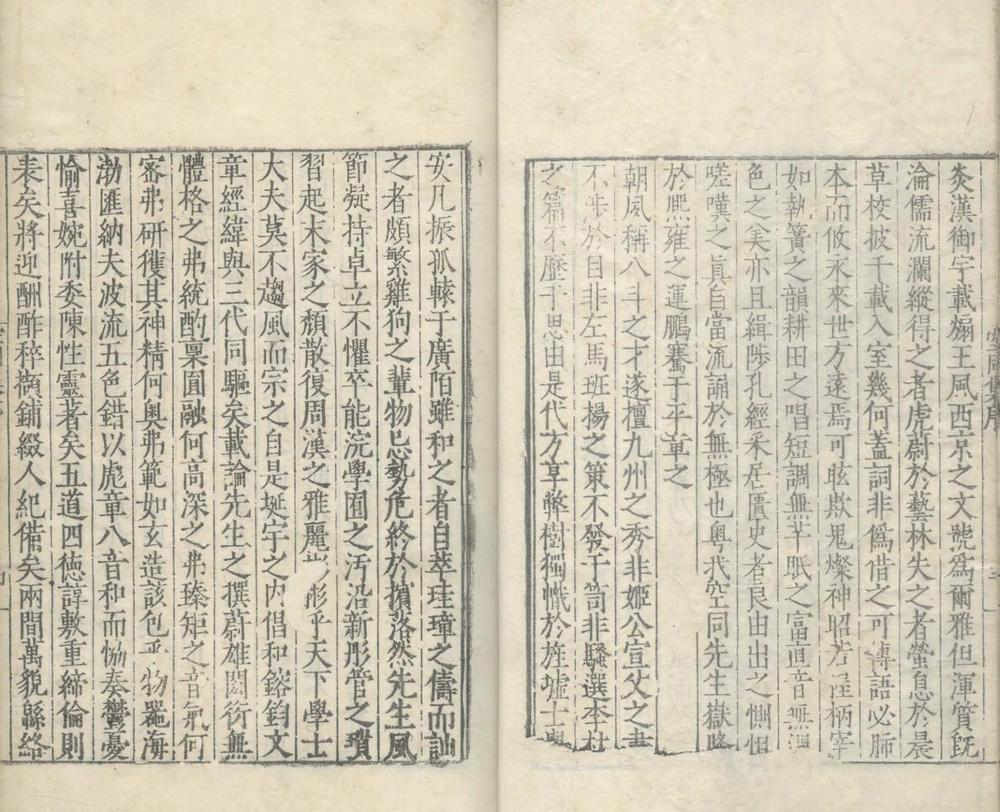 炎漢御宇載煽王風西京之文號爲爾雅但渾質旣
淪儒流瀾縱得之者虎蔚於藝林失之者螢息於晨
草校披千載入室幾何蓋詞非爲借之可傳語必肺
本而攸永來世方遠焉可眩欺鬼燦神昭若淫柄宰
如執簧之韻耕田之唱短調無辛眠之富直音無
色之美亦且緝陟孔經采居匱史者良由出之惻怛
嗟嘆之眞自當流誦於無極也粤我空同先生嶽降
於熙雍之運鵬騫于平章之
朝夙稱八斗之才遂擅九州之秀非姬公宣父之書
不涉於目非左馬班揚之策不發于笥非騷選李杜
之篇不歷于思由是代方享弊樹獨幟於旌墟士
安凡振孤轅于廣陌雖和之者自萃珪璋之儔而訕
之者頗繁雞狗之輩物忌勢危終於擯落然先生風
節凝持卓立不懼卒能浣學囿之汚沿新彤管之瓆
習起末家之頽散復周漢之雅麗彬彬乎天下學士
大夫莫不趨風而宗之自是埏宇之内倡和鎔鈞文
章經緯與三代同驅矣載論先生之撰蔚雄閎衍無
體格之弗統酌稟圓融何高深之弗臻矩之音氣何
密弗研獲其神精何奥弗範如玄造該包乎物嚣海
渤匯納夫波流五色錯以彪章八音和而恊奏鬱憂
愉喜婉附委陳性靈者矣五道四德諄敷重締倫則
表矣將迎酬酢稡擷鋪綴人紀備矣兩間萬貌縣絡
空同集序